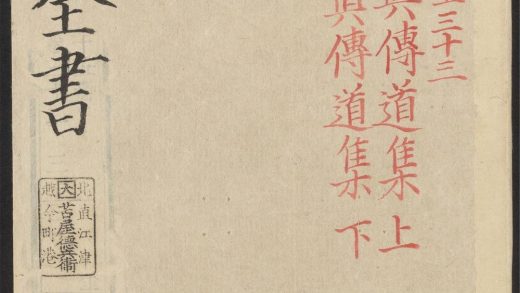 三十三
傳道集上
傳道集下
書
北直江津
大 苫屋德兵衛
越今町港